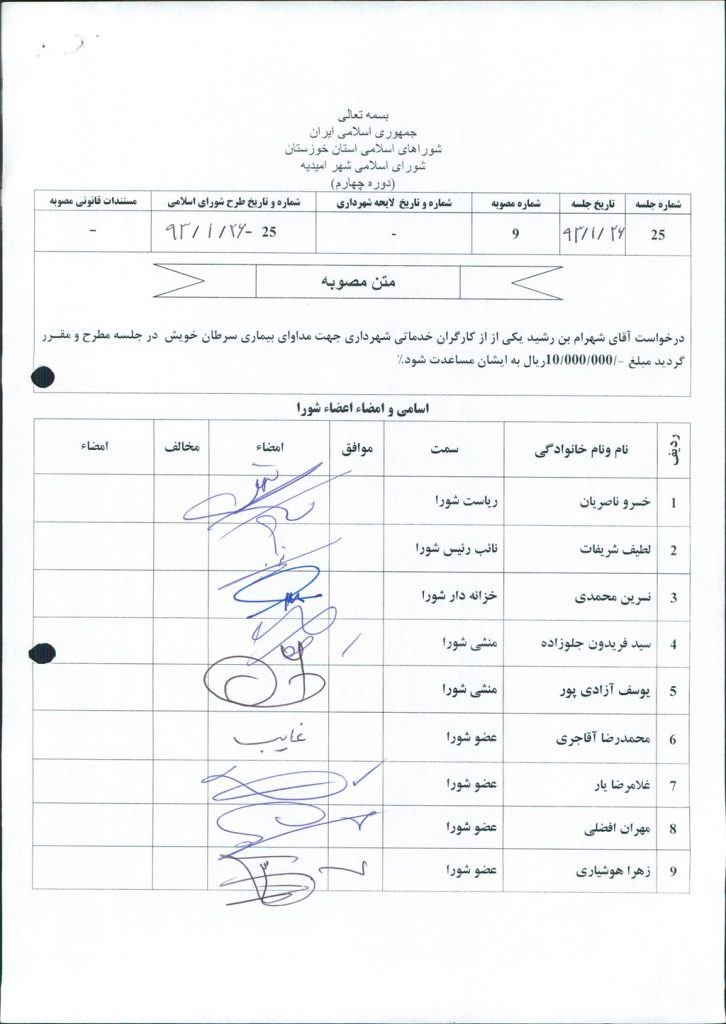 بسمه تعالی
جمهوری اسلامی ایران
شوراهای اسلامی استان خوزستان
شورای اسلامی شهر امیدیه
(دوره چهارم)
شماره جلسه تاریخ جلسه شماره مصوبه شماره و تاریخ لایحه شهرداری شماره و تاریخ طرح شورای اسلامی مستندات قانونی مصوبه
25 ۹۳/۱/۲۶ 9 - 25 -۹۳/۱/۲۶ -
متن مصوبه
درخواست آقای شهرام بن رشید یکی از از کارگران خدماتی شهرداری جهت مداوای بیماری سرطان خویش در جلسه مطرح و مقرر
گردید مبلغ -/10/000/000ریال به ایشان مساعدت شود٪
اسامی و امضاء اعضاء شورا
ردیف نام ونام خانوادگی سمت موافق امضاء مخالف امضاء
1 خسرو ناصریان ریاست شورا
2 لطیف شریفات نائب رئیس شورا
3 نسرین محمدی خزانه دار شورا
4 سید فریدون جلوزاده منشی شورا
5 یوسف آزادی پور منشی شورا
6 محمدرضا آقاجری عضو شورا غایب
7 غلامرضا یار عضو شورا
8 مهران افضلی عضو شورا
9 زهرا هوشیاری عضو شورا